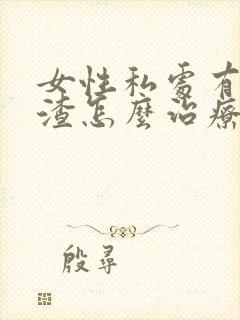 女性私處有
渣怎麼治療
殷尋